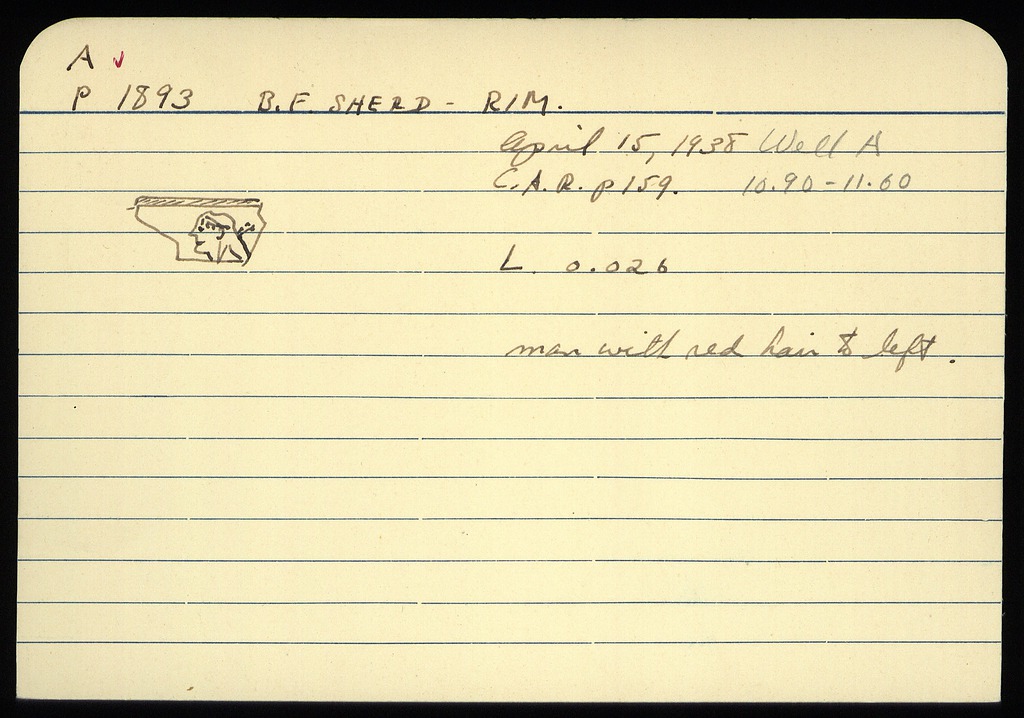 A ✓
P 1893 B.F. SHERD - RIM.
April 15, 1938 Well A
C.A.R. p 159. 10.90 - 11.60
L. 0.026
man with red hair to left.